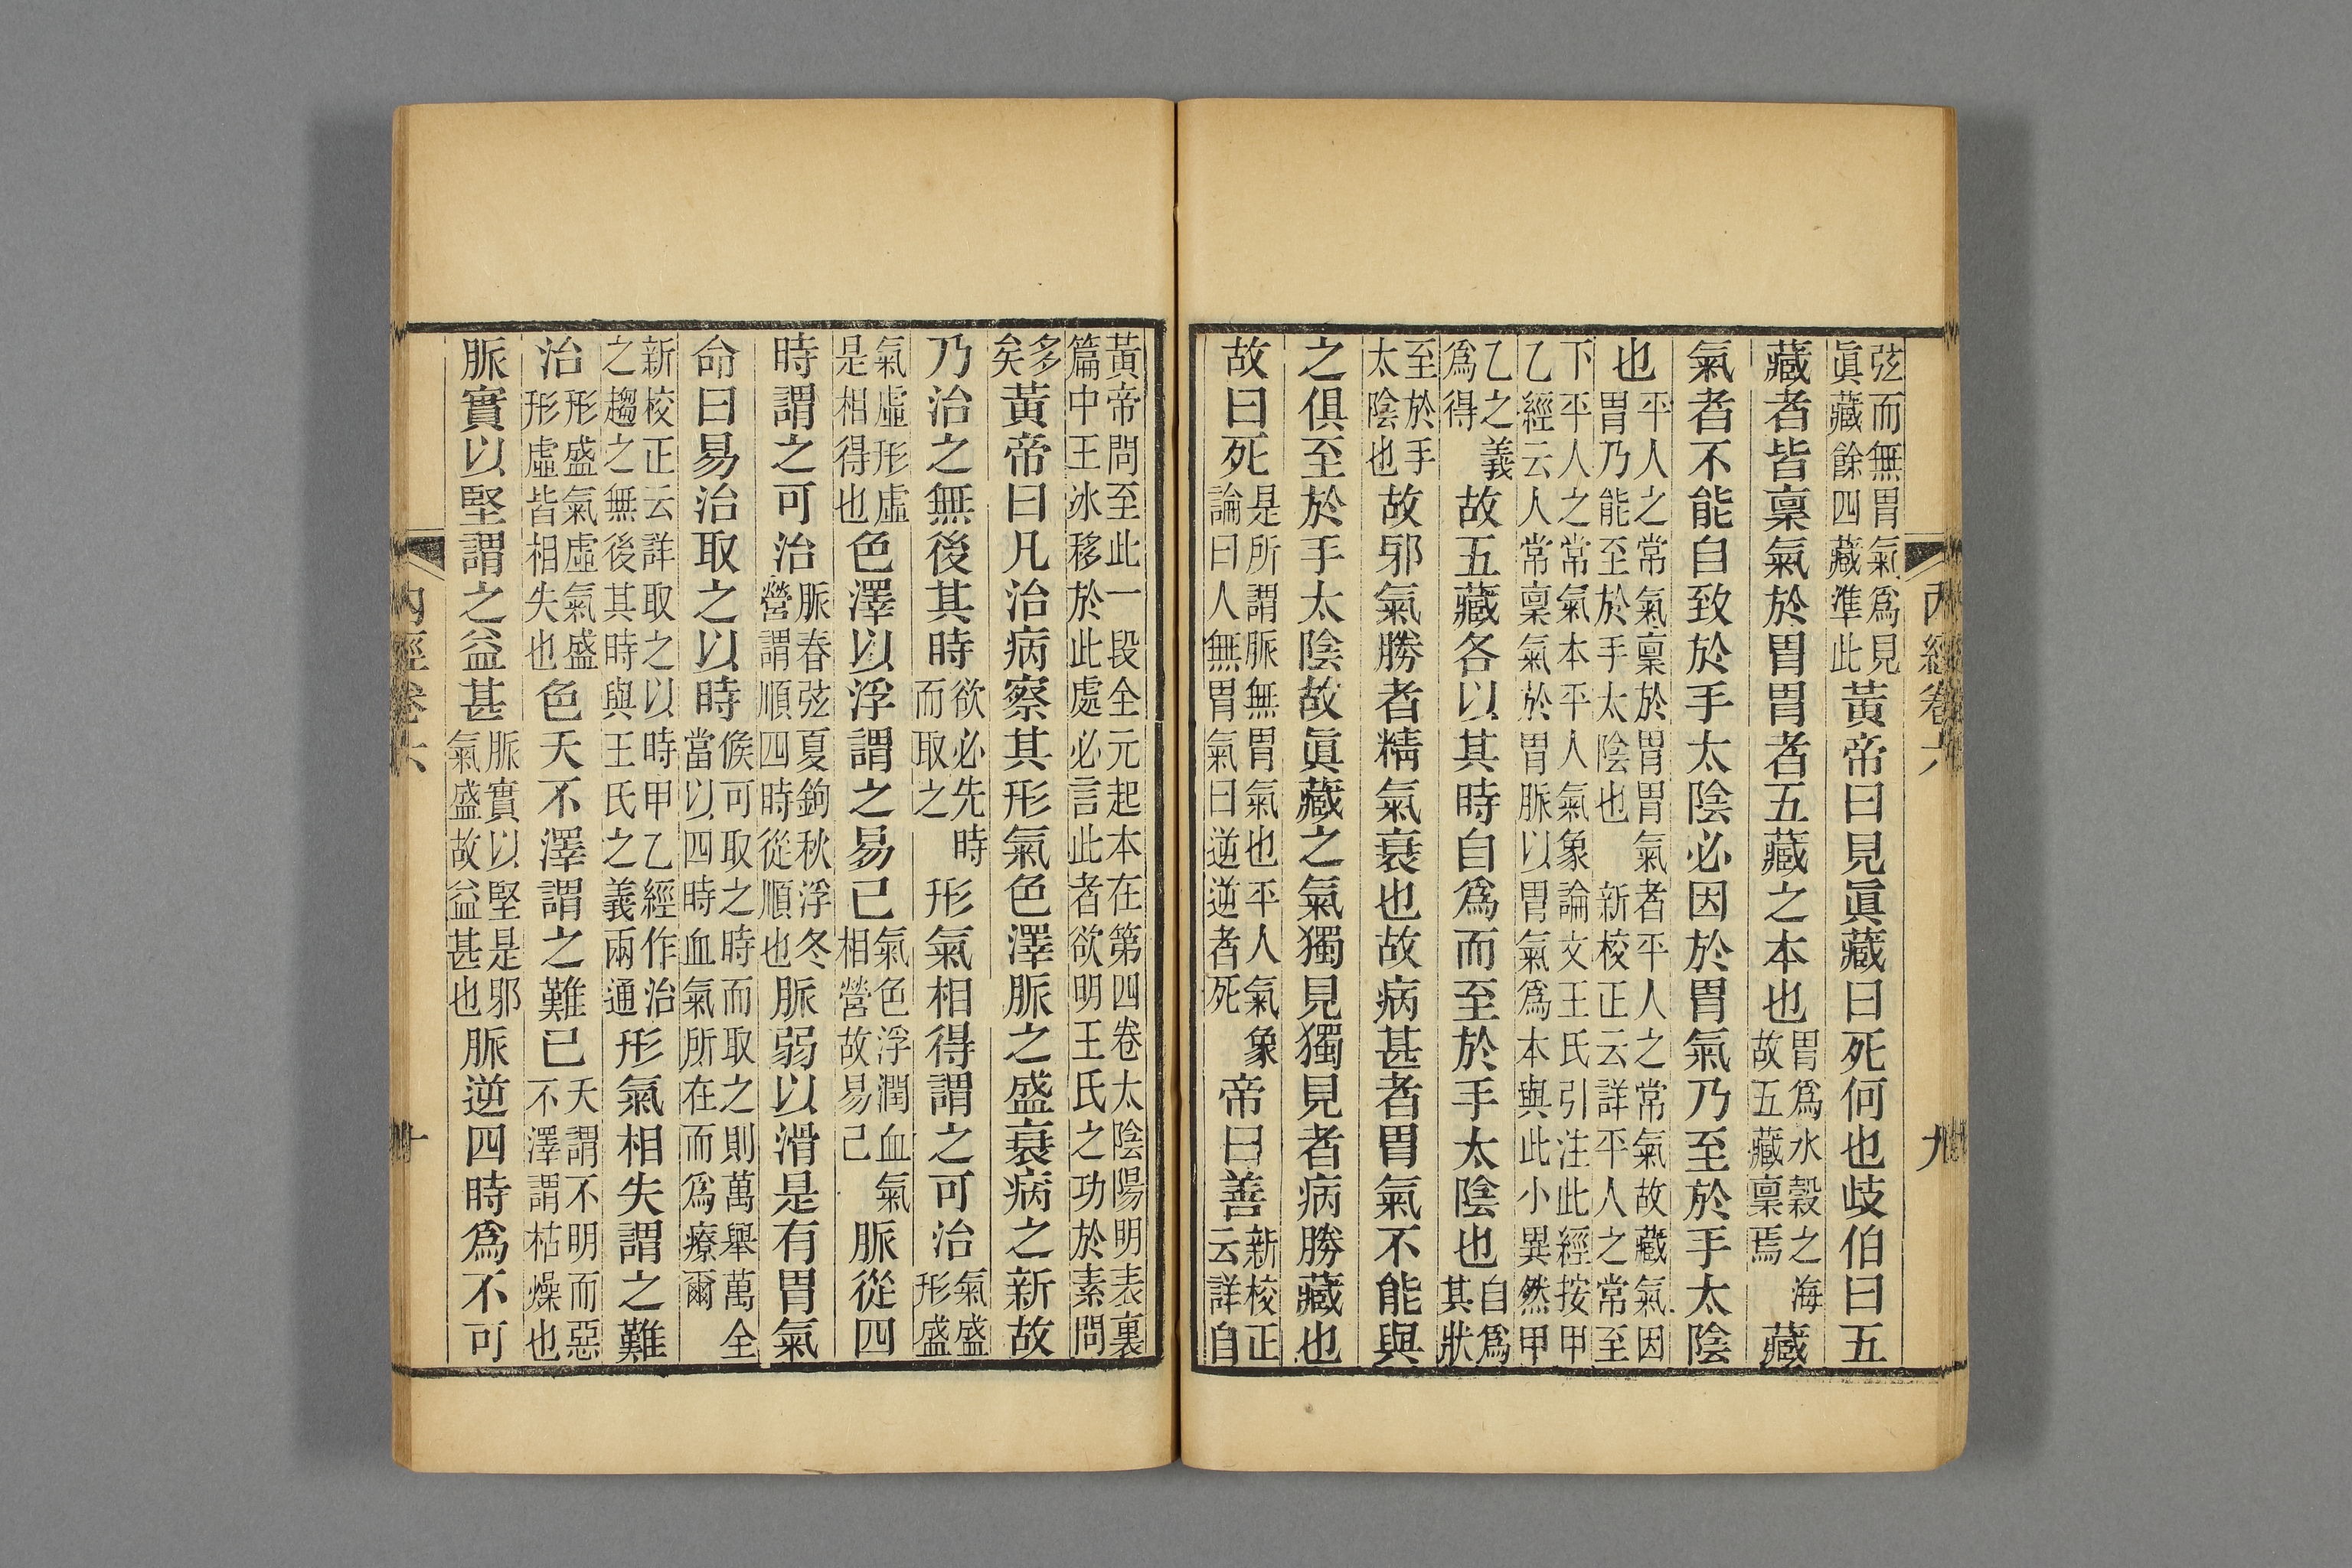 內經卷六 九
弦而無胃氣爲見眞藏餘四藏準此黃帝曰見眞藏曰死何也歧伯曰五
藏者皆稟氣於胃胃者五藏之本也胃爲水穀之海故五藏稟焉藏
氣者不能自致於手太陰必因於胃氣乃至於手太陰
也平人之常氣稟於胃胃氣者平人之常氣故藏氣因胃乃能至於手太陰也 新校正云詳平人之常至
下平人之常氣本平人氣象論文王氏引注此經按甲乙經云人常稟氣於胃脈以胃氣爲本與此小異然甲
乙之義爲得故五藏各以其時自爲而至於手太陰也自爲其狀
至於手太陰也故邪氣勝者精氣衰也故病甚者胃氣不能與
之俱至於手太陰故眞藏之氣獨見獨見者病勝藏也
故曰死是所謂脈無胃氣也平人氣象論曰人無胃氣曰逆逆者死帝曰善新校正云詳自
黃帝問至此一段全元起本在第四卷太陰陽明表裏篇中王冰移於此處必言此者欲明王氏之功於素問
多矣黃帝曰凡治病察其形氣色澤脈之盛衰病之新故
乃治之無後其時欲必先時而取之形氣相得謂之可治氣盛形盛
氣虛形虛是相得也色澤以浮謂之易已氣色浮潤血氣相營故易已脈從四
時謂之可治脈春弦夏鉤秋浮冬營謂順四時從順也脈弱以滑是有胃氣
命曰易治取之以時候可取之時而取之則萬舉萬全當以四時血氣所在而爲療爾
新校正云詳取之以時甲乙經作治之趨之無後其時與王氏之義兩通形氣相失謂之難
治形盛氣虛氣盛形虛皆相失也色夭不澤謂之難已夭謂不明而惡不澤謂枯燥也
脈實以堅謂之益甚脈實以堅是邪氣盛故益甚也脈逆四時爲不可
內經卷六 十